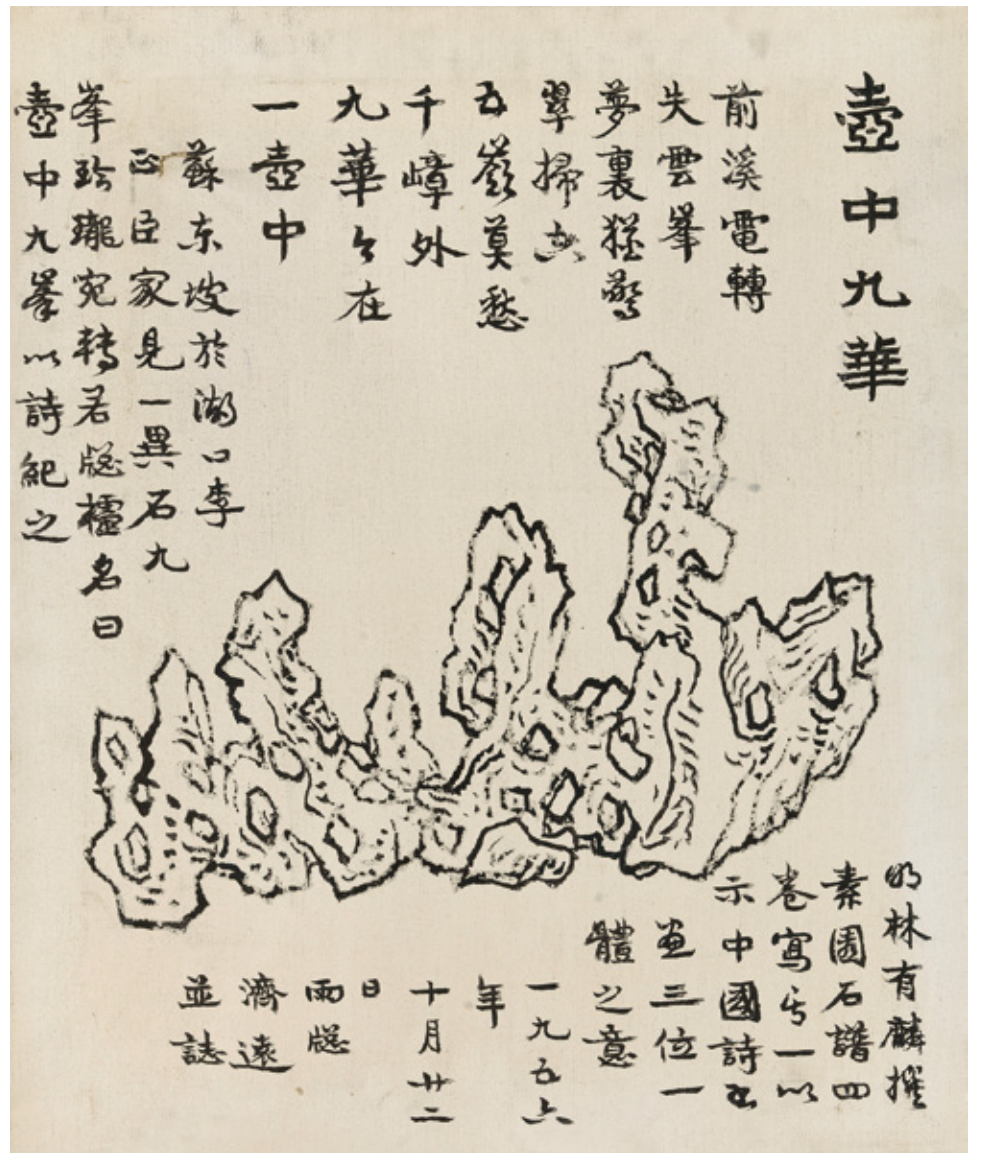 壺中九華
前溪電轉
失雲峯
夢裏猶驚
翠掃空
五嶺莫愁
千嶂外
九華今在
一壺中
蘇東坡於湖口李
正臣家見一異石九
峯玲瓏宛轉若牕櫺名曰
壺中九峯以詩紀之
明林有麟撰
素園石譜四
卷寫其一以
示中國詩書
畫三位一
體之意
一九五六
年
十月廿二
日
雨牕
濟遠
並誌